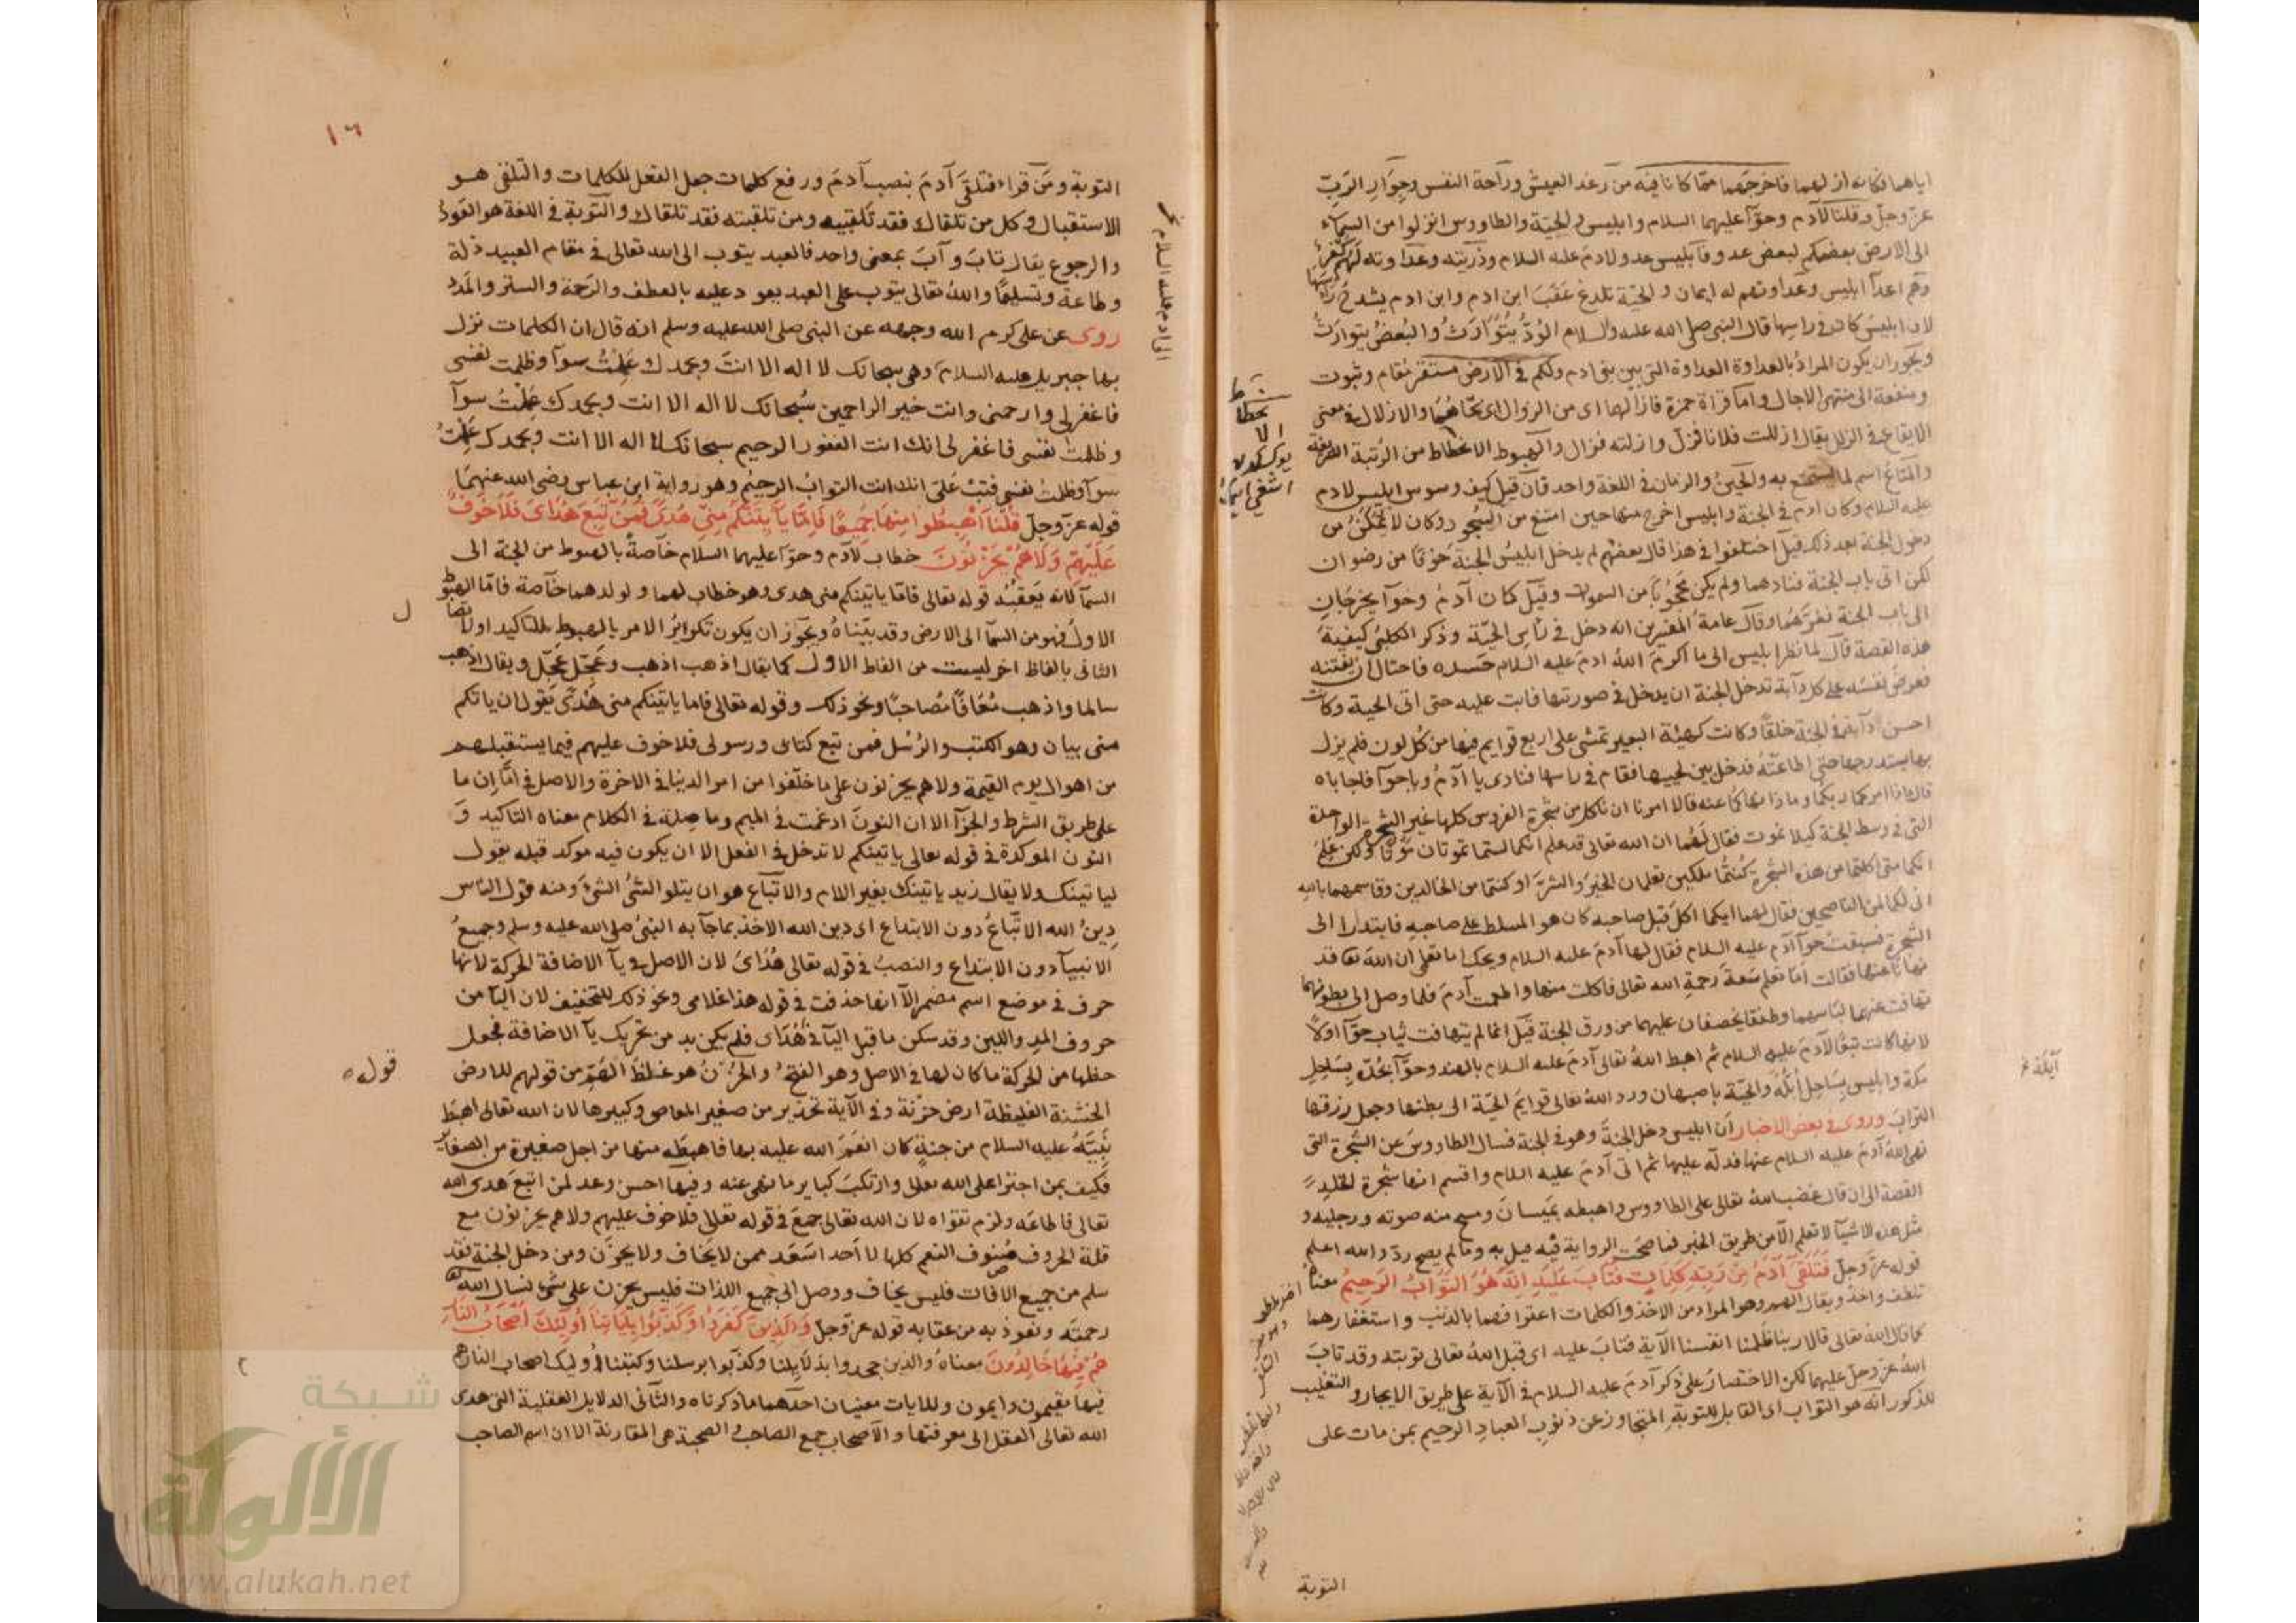 اياهما فكانه ازلهما فاخرجهما مما كانا فيه من رغد العيش وراحة النفس وجوار الرب
عز وجل وقلنا لآدم وحوآ عليهما السلام وابليس والحية والطاووس انزلوا من السمآء
الى الارض بعضكم لبعض عدو فابليس عدو لادم عليه السلام وذريته وعداوته لهم
وهم اعدآ ابليس وعداوتهم له ايمان والحية تلدغ عقب ابن ادم وابن ادم يشدخ راسها
لان ابليس كان في راسها قال النبي صلى الله عليه والسلام الود يتوارث والبغض يتوارث
ويجوز ان يكون المراد بالعداوة العداوة التى بين بنى ادم ولكم فى الارض مستقر مقام وثبوت
ومنفعة الى منتهى الاجال واما قراة حمزة فازالهما اى من الزوال اى نحاهما والازلال فى معنى
الايقاع فى الزلل يقال ازللت فلانا فزل وازلته فزال والهبوط الانحطاط من الرتبة الشريفة
والمتاع اسم لما يستمتع به والحين والزمان فى اللغة واحد فان قيل كيف وسوس ابليس لادم
عليه السلام وكان ادم فى الجنة وابليس اخرج منها حين امتنع من السجود وكان لا يتمكن من
دخول الجنة بعد ذلك قيل اختلفوا فى هذا قال بعضهم لم يدخل ابليس الجنة خوفا من رضوان
لكن اتى باب الجنة فنادهما ولم يكن محجوبا من السموات وقيل كان آدم وحوآ يخرجان
الى باب الجنة فغرهما وقال عامة المفسرين انه دخل فى راس الحية وذكر الكلبى كيفية
هذه القصة قال لما نظر ابليس الى ما اكرم الله ادم عليه السلام حسده فاحتال ان يفتنه
فعرض نفسه على كل دآبة تدخل الجنة ان يدخل فى صورتها فابت عليه حتى اتى الحية وكانت
احسن دآبة فى الجنة خلقا وكانت كهيئة البعير تمشى على اربع قوايم فيها من كل لون فلم يزل
بها يستدرجها حتى اطاعته فدخل بين لحييها فقام فى راسها فنادى يا آدم ويا حوآ فاجاباه
قال ماذا امركما ربكما وماذا نهاكما عنه قالا امرنا ان ناكل من شجرة الفردوس كلها غير الشجرة الواحدة
التى فى وسط الجنة كيلا نموت فقال لهما ان الله تعالى قد علم انكما لستما تموتان موتا ولكن علم
انكما متى اكلتما من هذه الشجرة كنتما ملكين تعلمان الخير والشر او كنتما من الخالدين وقاسمهما بالله
انى لكما لمن الناصحين فقال لهما ايكما اكل قبل صاحبه كان هو المسلط على صاحبه فابتدارا الى
الشجرة فسبقت حوآ آدم عليه السلام فقال لها آدم عليه السلام ويحك اما تعلمى ان الله تعا قد
نهانا عنها فقالت اما تعلم سعة رحمة الله تعالى فاكلت منها واطعمت آدم فلما وصل الى بطونهما
تهافت عنهما لباسهما وطفقا يخصفان عليهما من ورق الجنة قيل انما لم يتهافت ثياب حوآ اولا
لانها كانت تبعا لآدم عليه السلام ثم اهبط الله تعالى آدم عليه السلام بالهند وحوآ بجدة بساحل
مكة وابليس بساحل ابلة والحية باصبهان ورد الله تعالى قوايم الحية الى بطنها وجعل رزقها
التراب وروى فى بعض الاخبار ان ابليس دخل الجنة وهو فى الجنة فسال الطاووس عن الشجرة التى
نهى الله آدم عليه السلام عنها فدله عليها ثم اتى آدم عليه السلام واقسم انها شجرة الخلد
القصة الى ان قال غضب الله تعالى على الطاووس واهبطه بميسان ومسخ منه صوته ورجليه و
مثل هذه الاشيآ لا تعلم الا من طريق الخبر فما صحت الرواية فيه قيل به وما لم يصح رد والله اعلم
قوله عز وجل فتلقى آدم من ربه كلمات فتاب عليه انه هو التواب الرحيم معناه
تلقف واخذ ويقال الهم وهو المراد من الاخذ والكلمات اعترافهما بالذنب واستغفارهما
كما قال الله تعالى قالا ربنا ظلمنا انفسنا الآية فتاب عليه اى قبل الله تعالى توبته وقد تاب
الله عز وجل عليهما لكن الاختصار على ذكر آدم عليه السلام فى الآية على طريق الايجاز والتغليب
للذكور انه هو التواب اى القابل للتوبة المتجاوز عن ذنوب العباد الرحيم بمن مات على
التوبة
ايلة
١٦
التوبة ومن قراء فتلقى آدم بنصب آدم ورفع كلمات جعل الفعل للكلمات والتلقى هو
الاستقبال وكل من تلقاك فقد تلقيته ومن تلقيته فقد تلقاك والتوبة فى اللغة هو العود
والرجوع يقال تاب وآب بمعنى واحد فالعبد يتوب الى الله تعالى فى مقام العبيد ذلة
وطاعة وتسليما والله تعالى يتوب على العبد يعود عليه بالعطف والرحمة والستر والمدد
روى عن على كرم الله وجهه عن النبى صلى الله عليه وسلم انه قال ان الكلمات نزل
بها جبريل عليه السلام وهى سبحانك لا اله الا انت وبحمدك عملت سوآ وظلمت نفسى
فاغفر لى وارحمنى وانت خير الراحمين سبحانك لا اله الا انت وبحمدك عملت سوآ
وظلمت نفسى فاغفر لى انك انت الغفور الرحيم سبحانك لا اله الا انت وبحمدك عملت
سوآ وظلمت نفسى فتب على انك انت التواب الرحيم وهو رواية ابن عباس رضى الله عنهما
قوله عز وجل قلنا اهبطوا منها جميعا فاما ياتينكم منى هدى فمن تبع هداى فلا خوف
عليهم ولا هم يحزنون خطاب لآدم وحوا عليهما السلام خآصة بالهبوط من الجنة الى
السمآ لانه يعقبه قوله تعالى فاما ياتينكم منى هدى وهو خطاب لهما ولولدهما خآصة فاما الهبوط
الاول فهو من السمآ الى الارض وقد بيناه ويجوز ان يكون تكرير الامر بالهبوط للتاكيد اولا
الثانى بالفاظ اخر ليست من الفاظ الاول كما يقال اذهب اذهب وعجل عجل ويقال اذهب
سالما واذهب معافا مصاحبا ونحو ذلك وقوله تعالى فاما ياتينكم منى هدى يقول ان ياتكم
منى بيان وهو الكتب والرسل فمن تبع كتابى ورسولى فلا خوف عليهم فيما يستقبلهم
من اهوال يوم القيمة ولا هم يحزنون على ما خلفوا من امر الدنيا فى الاخرة والاصل فى اما ان ما
على طريق الشرط والجزآ الا ان النون ادغمت فى الميم وما صلة فى الكلام معناه التاكيد و
النون الموكدة فى قوله تعالى ياتينكم لا تدخل فى الفعل الا ان يكون فيه موكد قبله يقول
لياتينك ولا يقال زيد ياتينك بغير اللام والاتباع هو ان يتلو الشئ الشئ ومنه قول الناس
دين الله الاتباع دون الابتداع اى دين الله الاخذ بما جآ به النبى صلى الله عليه وسلم وجميع
الانبيآ دون الابتداع والنصب فى قوله تعالى هداى لان الاصل فى يآ الاضافة الحركة لانها
حرف فى موضع اسم مضمر الا انها حذفت فى قوله هذا غلامى ونحو ذلك للتخفيف لان اليآ من
حروف المد واللين وقد سكن ما قبل اليآ فى هداى فلم يكن بد من تحريك يآ الاضافة فجعل
حظها من الحركة ما كان لها فى الاصل وهو الفتح والحزن هو غلظ الهم من قولهم للارض
الخشنة الغليظة ارض حزنة وفى الآية تحذير من صغير المعاصى وكبيرها لان الله تعالى اهبط
نبيه عليه السلام من جنة كان انعم الله عليه بها فاهبطه منها من اجل صغيرة من الصغاير
فكيف بمن اجترا على الله تعالى وارتكب كباير ما نهى عنه وفيها احسن وعد لمن اتبع هدى الله
تعالى فاطاعه ولزم تقواه لان الله تعالى جمع فى قوله تعالى فلا خوف عليهم ولا هم يحزنون مع
قلة الحروف صنوف النعم كلها لا احد اسعد ممن لا يخاف ولا يحزن ومن دخل الجنة فقد
سلم من جميع الافات فليس يخاف ووصل الى جميع اللذات فليس يحزن على شئ نسال الله
رحمته ونعوذ به من عقابه قوله عز وجل والذين كفروا وكذبوا باياتنا اولئك اصحاب النار
هم فيها خالدون معناه والذين جحدوا بدلايلنا وكذبوا برسلنا وكتبنا اوليك اصحاب النار هم
فيها مقيمون دايمون وللايات معنيان احدهما ما ذكرناه والثانى الدلايل العقلية التى هدى
الله تعالى العقل الى معرفتها والاصحاب جمع الصاحب والصحبة هى المقارنة الا ان اسم الصاحب
قوله
شبكة
الألوكة
www.alukah.net